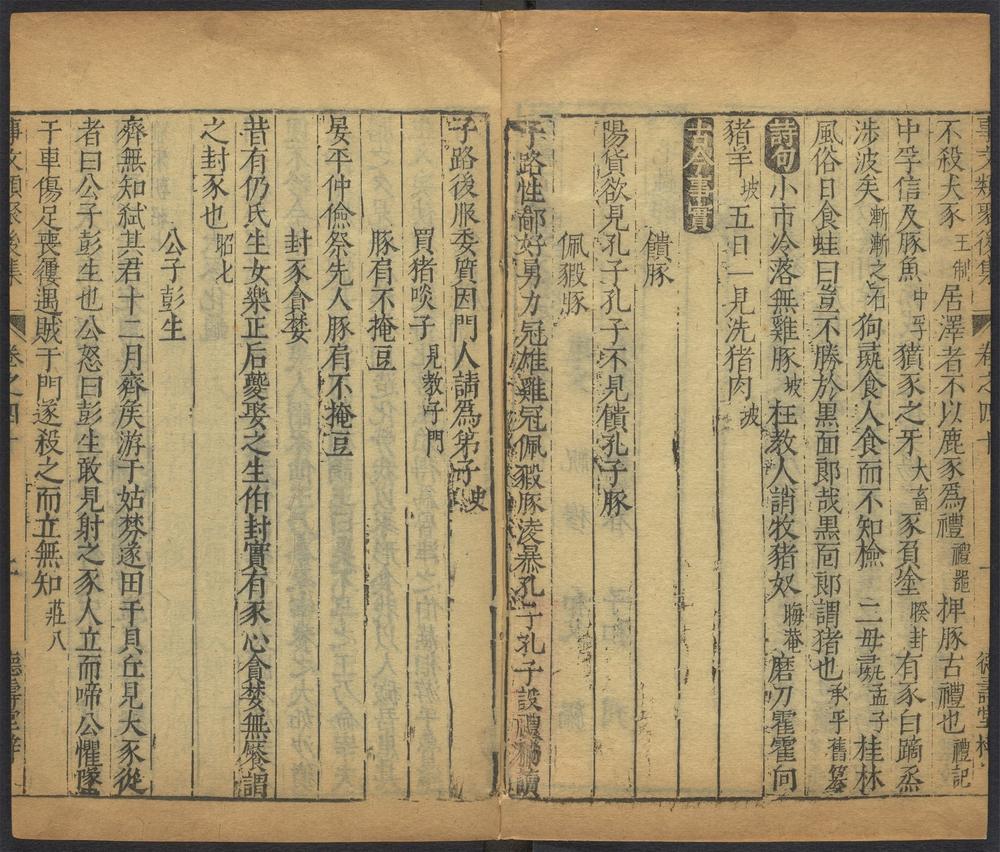 事文類聚後集 卷之四十 德壽堂梓
不殺犬豕王制居澤者不以鹿豕為禮禮器押豚古禮也禮記
中孚信及豚魚中孚豶豕之牙大畜豕負塗睽封有豕白蹢烝
涉波矣漸漸之石狗彘食人食而不知檢 二毋彘孟子桂林
風俗日食蛙曰豈不勝於黑面郎哉黑面郎謂猪也承平舊纂
詩句小市冷落無雞豚坡枉教人誚牧猪奴晦菴磨刀霍霍向
豬羊坡五日一見洗猪肉坡
古今事實
饋豚
陽貨欲見孔子孔子不見饋孔子豚
佩豭豚
子路性鄙好勇力冠雄雞冠佩豭豚凌暴孔子孔子設禮稍誘
子路後服委質因門人請爲第子史
買猪啖子見教子門
豚肩不掩豆
晏平仲儉祭先人豚肩不掩豆
封豕貪婪
昔有仍氏生女樂正后夔娶之生伯封實有豕心貪婪無饜謂
之封豕也昭七
公子彭生
齊無知弒其君十二月齊矦游于姑棼遂田于貝丘見大豕從
者曰公子彭生也公怒曰彭生敢見射之豕人立而啼公懼墜
于車傷足喪屨遇賊于門遂殺之而立無知莊八
事文類聚後集 卷之四十 德壽堂梓